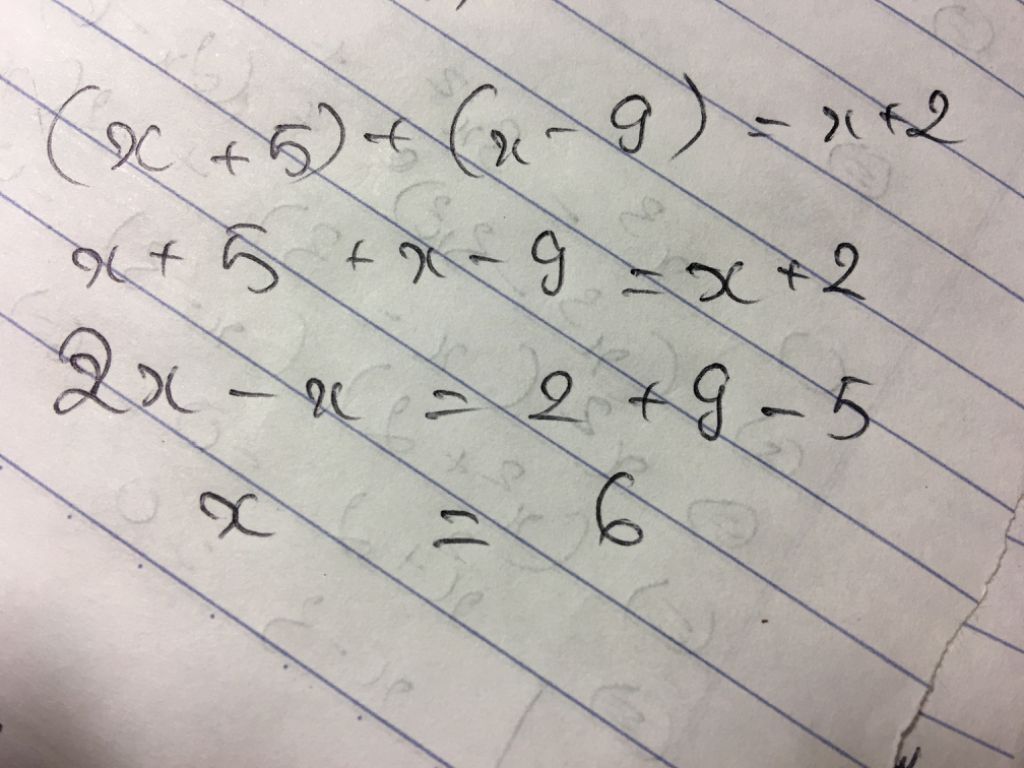 (x + 5) + (x - 9) = x + 2
x + 5 + x - 9 = x + 2
2x - x = 2 + 9 - 5
x = 6